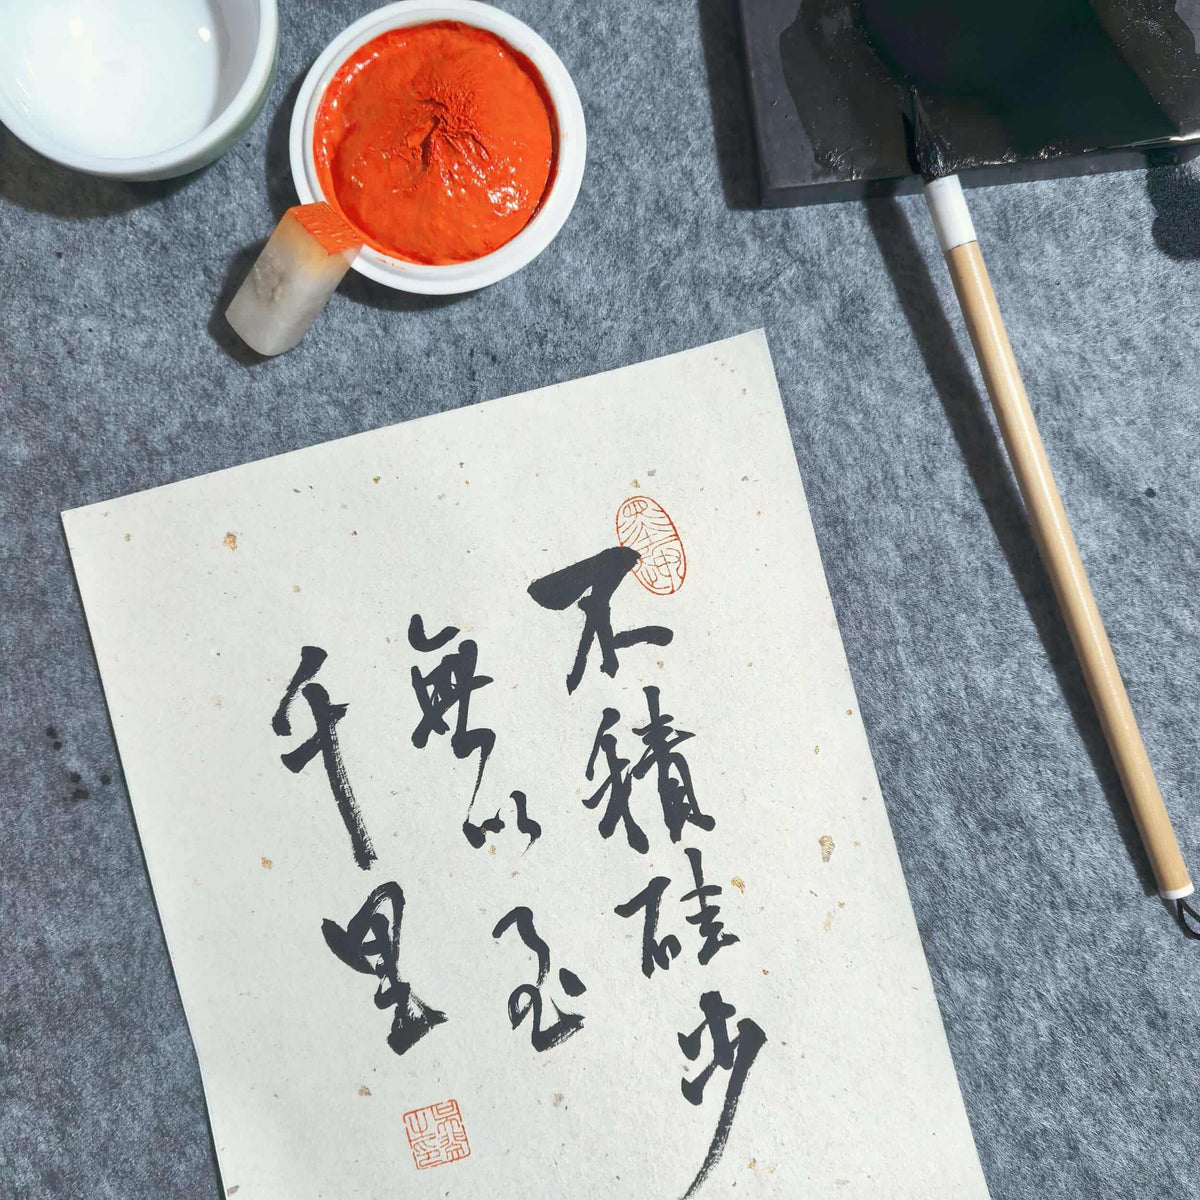 不積硅步
無以至
千里